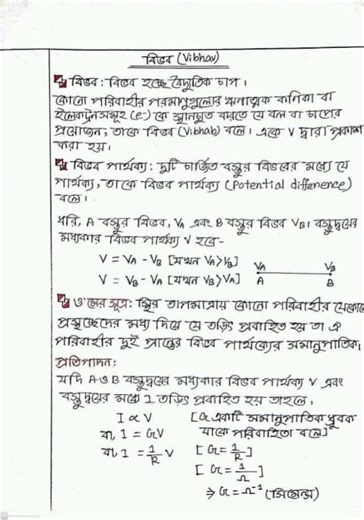 বিভব (Vibhav)
বিভব: বিভব হচ্ছে বৈদ্যুতিক চাপ।
কোনো পরিবাহীর পরমাণুগুলোর ঋণাত্মক কণিকা বা
ইলেকট্রনসমূহ (e-) কে স্থানচ্যুত করতে যে বল বা চাপের
প্রয়োজন, তাকে বিভব (Vibhab) বলে। একে V দ্বারা প্রকাশ
করা হয়।
বিভব পার্থক্য: দুটি চার্জিত বস্তুর বিভবের মধ্যে যে
পার্থক্য, তাকে বিভব পার্থক্য (Potential difference)
বলে।
ধরি, A বস্তুর বিভব, VA এবং B বস্তুর বিভব VB। বস্তুদ্বয়ের
মধ্যকার বিভব পার্থক্য V হবে-
V = VA - VB [যখন VA > VB]
V = VB - VA [যখন VB > VA]
VA VB
A B
ও'মের সূত্র: স্থির তাপমাত্রায় কোনো পরিবাহীর যেকোনো
প্রস্থচ্ছেদের মধ্য দিয়ে যে তড়িৎ প্রবাহিত হয় তা ঐ
পরিবাহীর দুই প্রান্তের বিভব পার্থক্যের সমানুপাতিক।
প্রতিপাদন:
যদি A ও B বস্তুদ্বয়ের মধ্যকার বিভব পার্থক্য V এবং
বস্তুদ্বয়ের মধ্যে I তড়িৎ প্রবাহিত হয় তাহলে,
I ∝ V [G একটি সমানুপাতিক ধ্রুবক
বা, I = GV যাকে পরিবাহিতা বলে]
বা, I = 1/R V [G = 1/R]
[G = 1/Ω]
⇒ G = Ω⁻¹ (সিমেন্স)